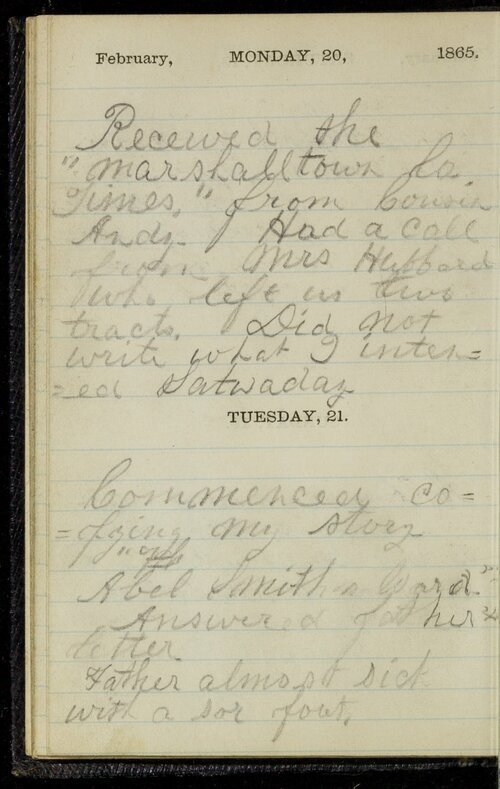 February, MONDAY, 20, 1865.
Received the
"Marshalltown Ia
Times," from Cousin
Andy. Had a call
from Mrs Hubbard
who left us two
tracts. Did not
write what I inten=
=ed Satwaday
TUESDAY, 21.
Commenced co=
=pying my story
"
Abel Smith's Ward."
Answered father's
letter
Father almost sick
with a sor foot.